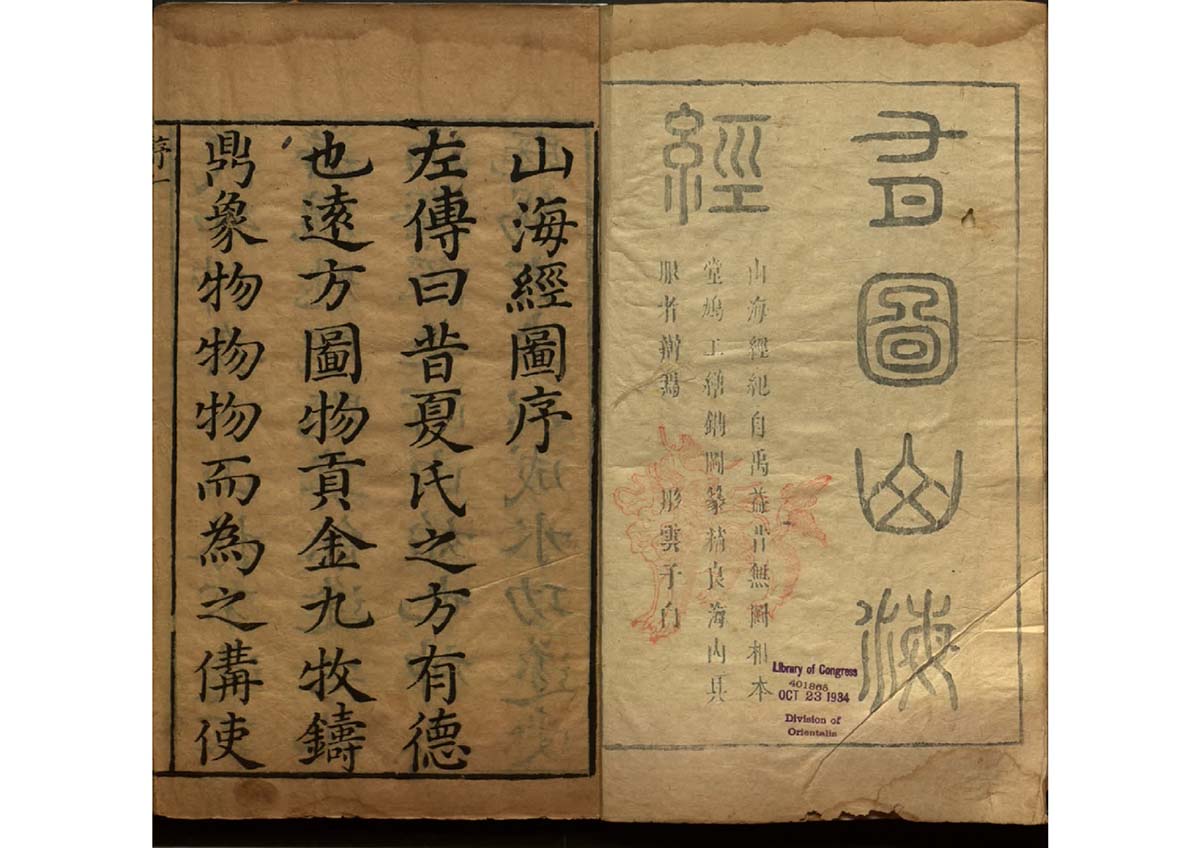 有圖山海
經
山海經紀自禹益昔無圖相本
堂鳩工繡鋟圖篆精良海内具
眼者辨焉 彤雲子白
Library of Congress
401865
OCT 23 1934
Division of
Orientalia
山海經圖序
左傳曰昔夏氏之方有德
也遠方圖物貢金九牧鑄
鼎象物物物而為之備使
序一